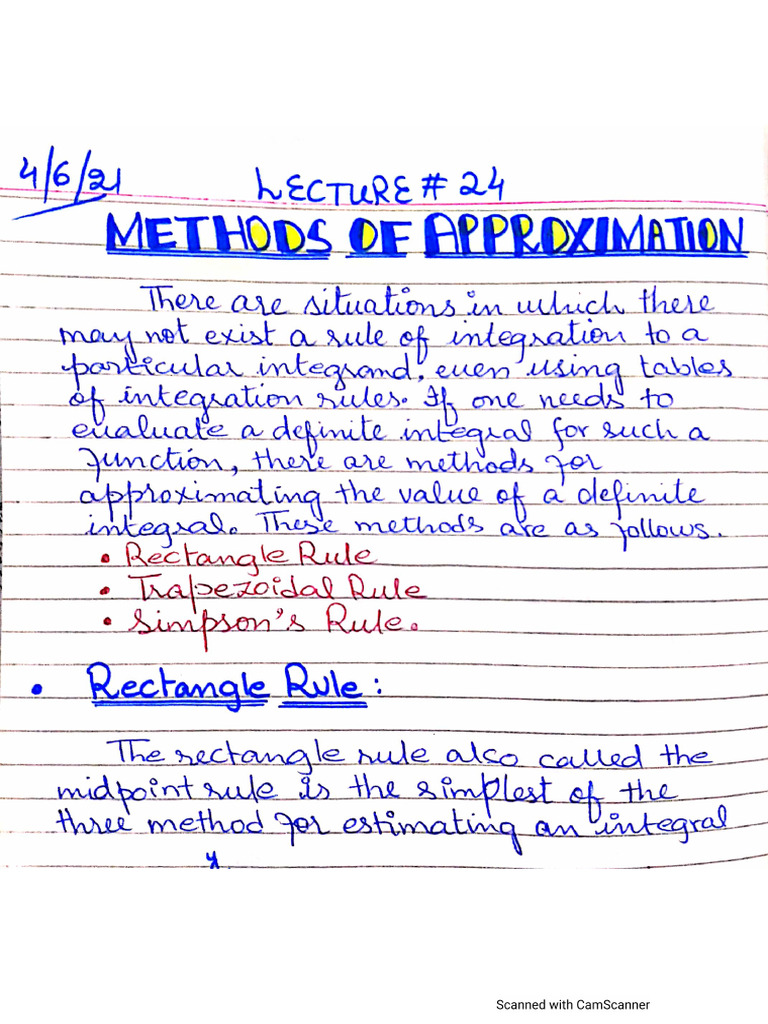 4/6/21
LECTURE # 24
METHODS OF APPROXIMATION
There are situations in which there
may not exist a rule of integration to a
particular integrand, even using tables
of integration rules. If one needs to
evaluate a definite integral for such a
function, there are methods for
approximating the value of a definite
integral. These methods are as follows.
• Rectangle Rule
• Trapezoidal Rule
• Simpson's Rule.
• Rectangle Rule:
The rectangle rule also called the
midpoint rule is the simplest of the
three method for estimating an integral
y
Scanned with CamScanner